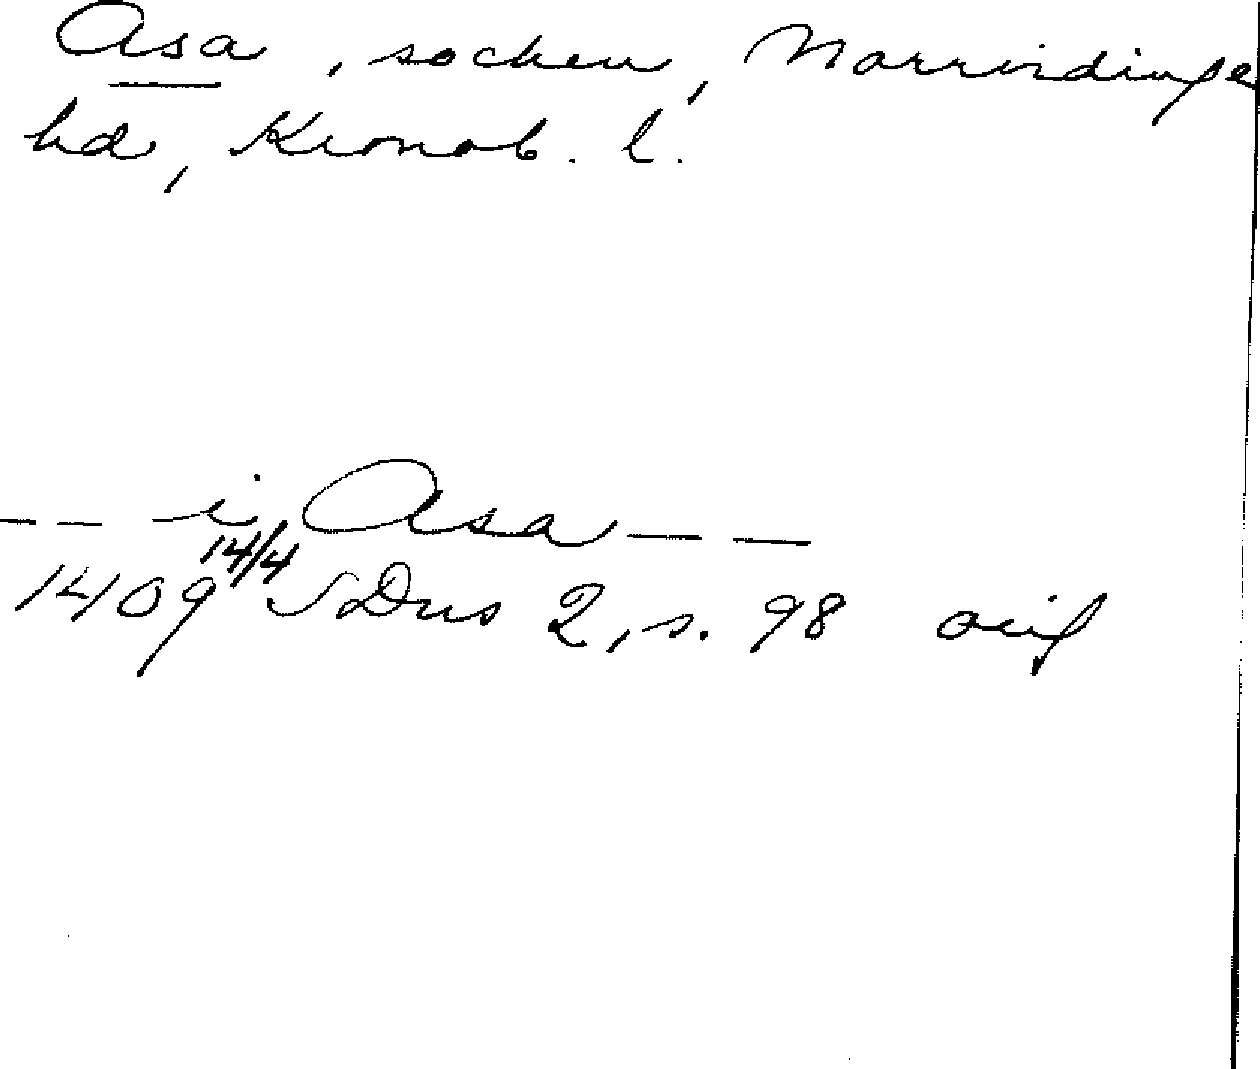 Asa, socken, Norrvidinge
hd, Kronob. l.
-- -- i Asa -- --
1409 14/4 SDns 2, s. 98 orig